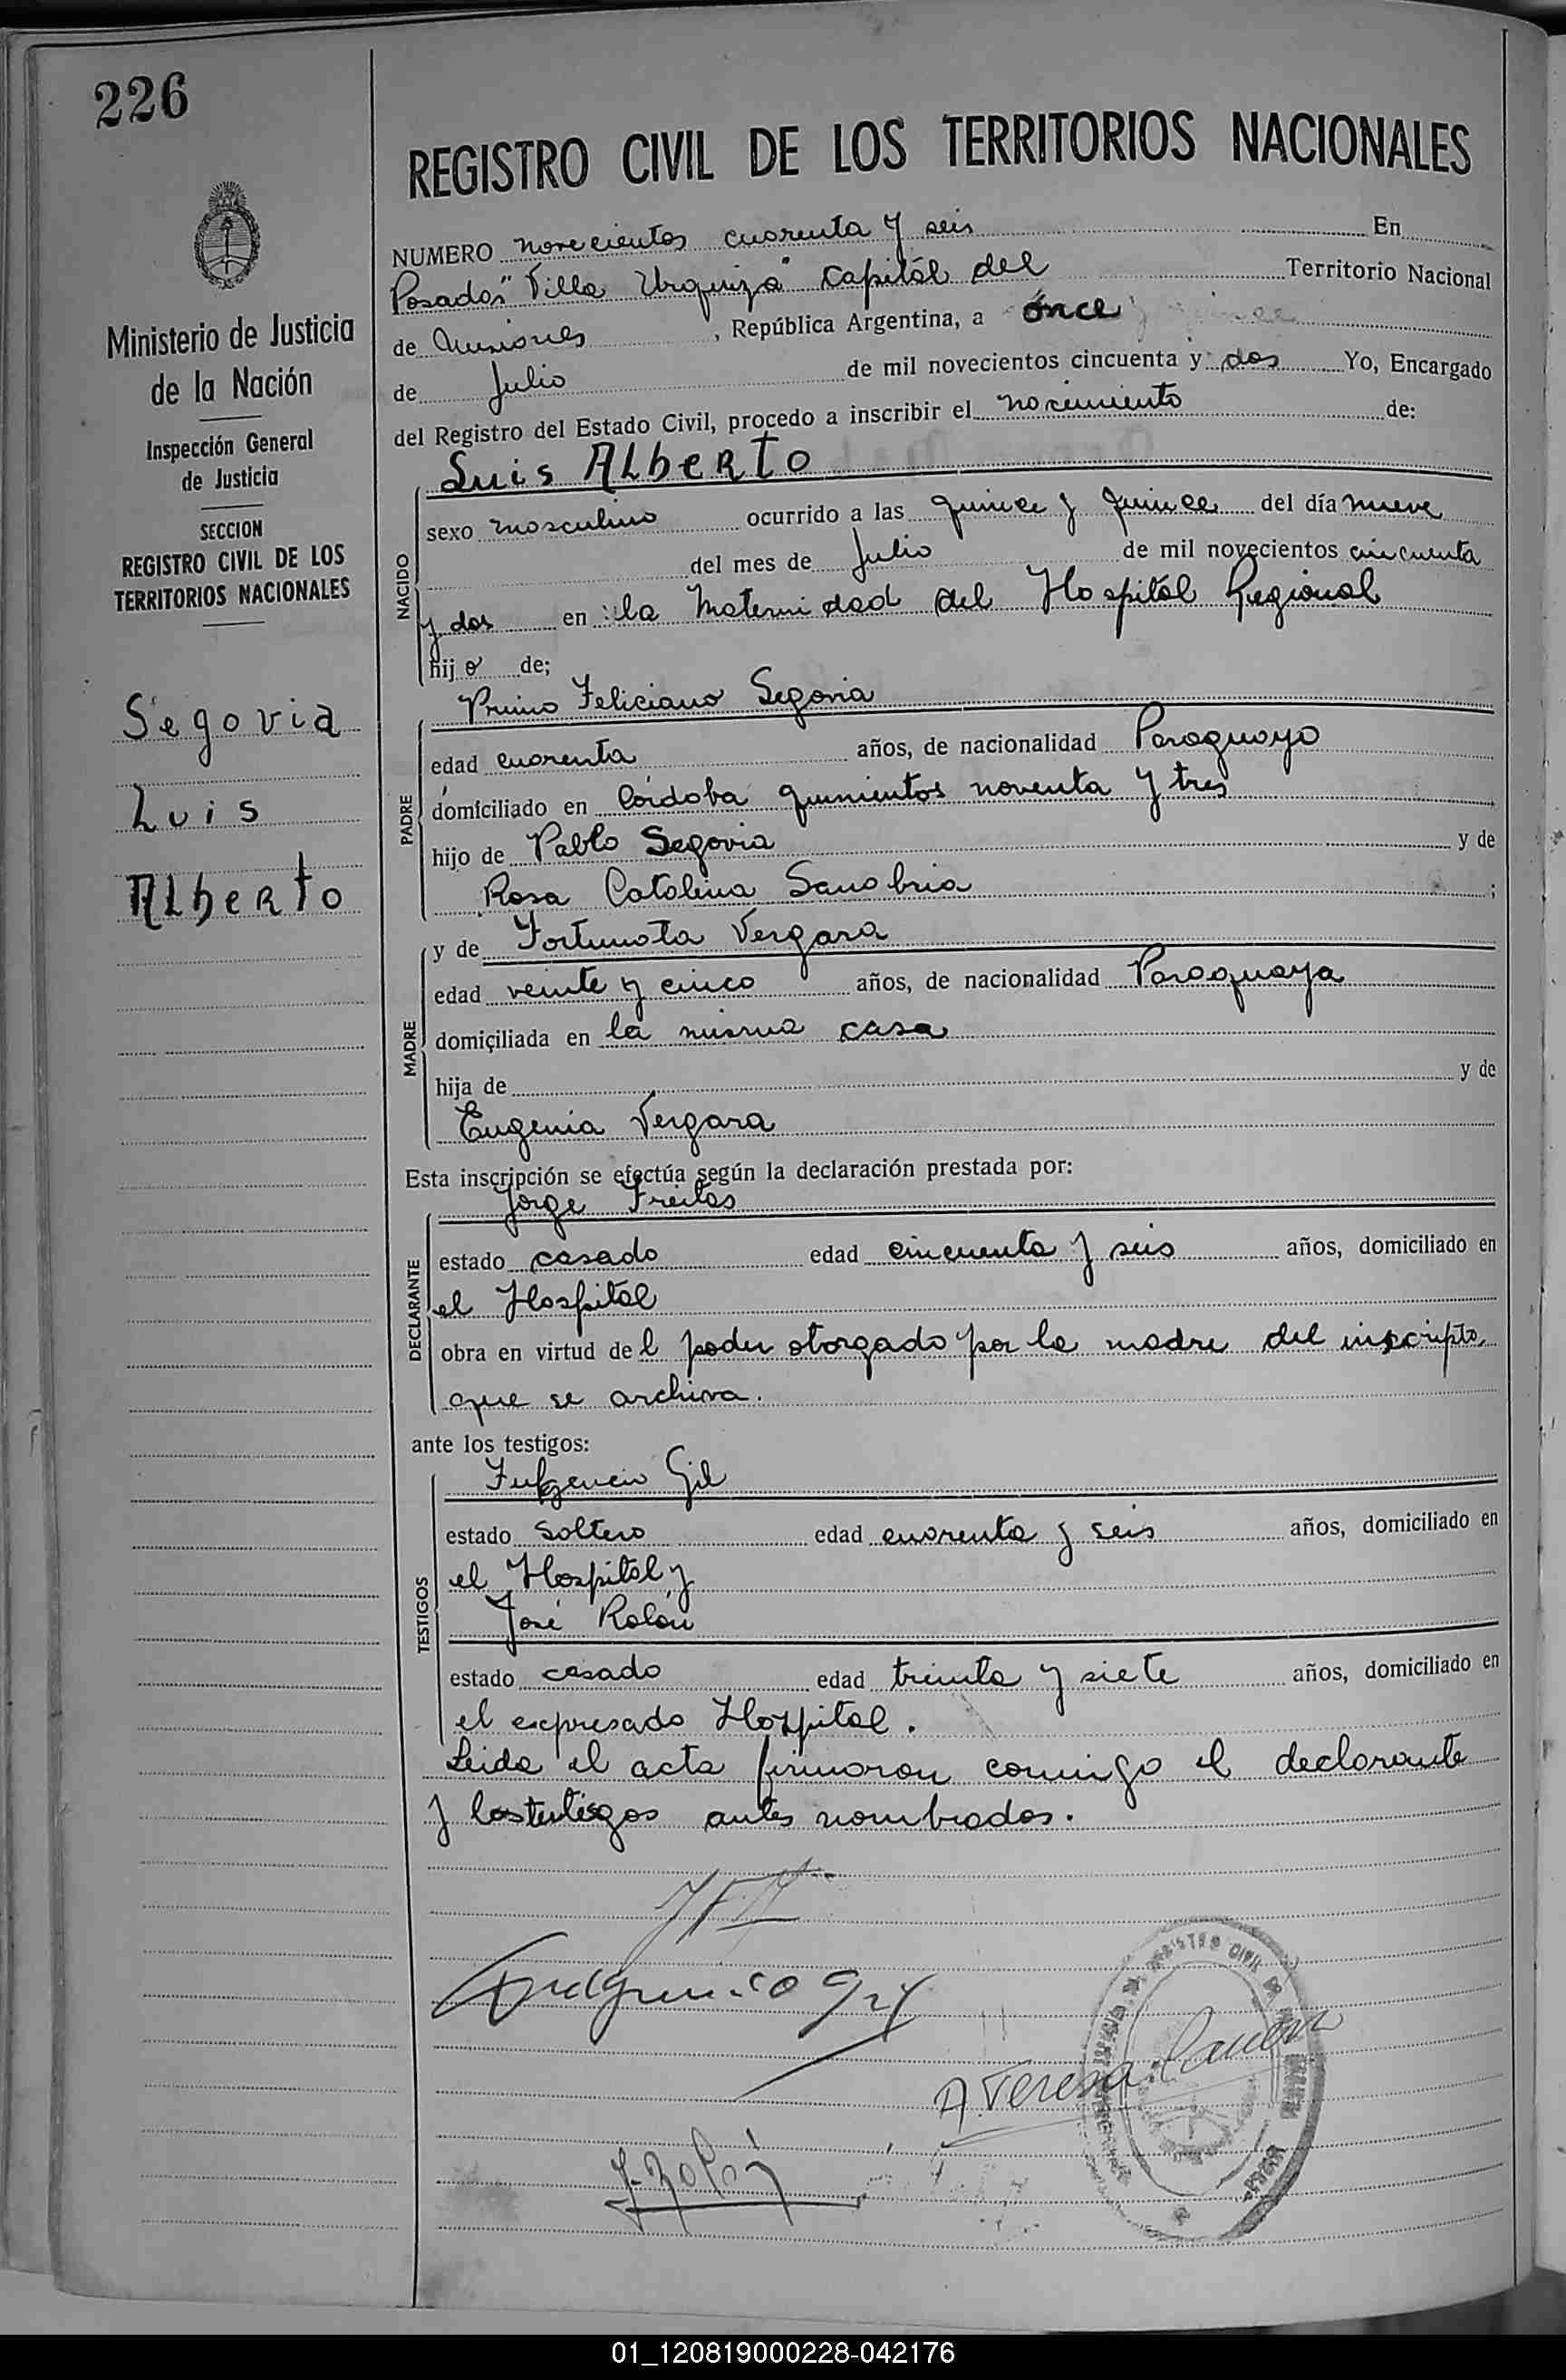 226
REGISTRO CIVIL DE LOS TERRITORIOS NACIONALES
Ministerio de Justicia
de la Nación
Inspección General
de Justicia
SECCION
REGISTRO CIVIL DE LOS
TERRITORIOS NACIONALES
Segovia
Luis
Alberto
NUMERO novecientos cuarenta y seis En
Posadas "Villa Urquiza" Capital del Territorio Nacional
de Misiones, República Argentina, a once
de Julio de mil novecientos cincuenta y dos Yo, Encargado
del Registro del Estado Civil, procedo a inscribir el nacimiento de:
Luis Alberto
NACIDO
sexo masculino ocurrido a las quince y quince del día nueve
del mes de Julio de mil novecientos cincuenta
y dos en la Maternidad del Hospital Regional
hijo de;
PADRE
Primo Feliciano Segovia
edad cuarenta años, de nacionalidad Paraguayo
domiciliado en Córdoba quinientos noventa y tres
hijo de Pablo Segovia y de
Rosa Catalina Sanabria ;
MADRE
y de Fortunata Vergara
edad veinte y cinco años, de nacionalidad Paraguaya
domiciliada en la misma casa
hija de y de
Eugenia Vergara
Esta inscripción se efectúa según la declaración prestada por:
DECLARANTE
Jorge Freitas
estado casado edad cincuenta y seis años, domiciliado en
el Hospital
obra en virtud del poder otorgado por la madre del inscripto,
que se archiva.
ante los testigos:
TESTIGOS
Fulgencio Gil
estado soltero edad cuarenta y seis años, domiciliado en
el Hospital y
José Rolón
estado casado edad treinta y siete años, domiciliado en
el expresado Hospital.
Leida el acta firmaron conmigo el declarante
y los testigos antes nombrados.
Fulgencio Gil
A. Teresa
J. Rolón
01_120819000228-042176